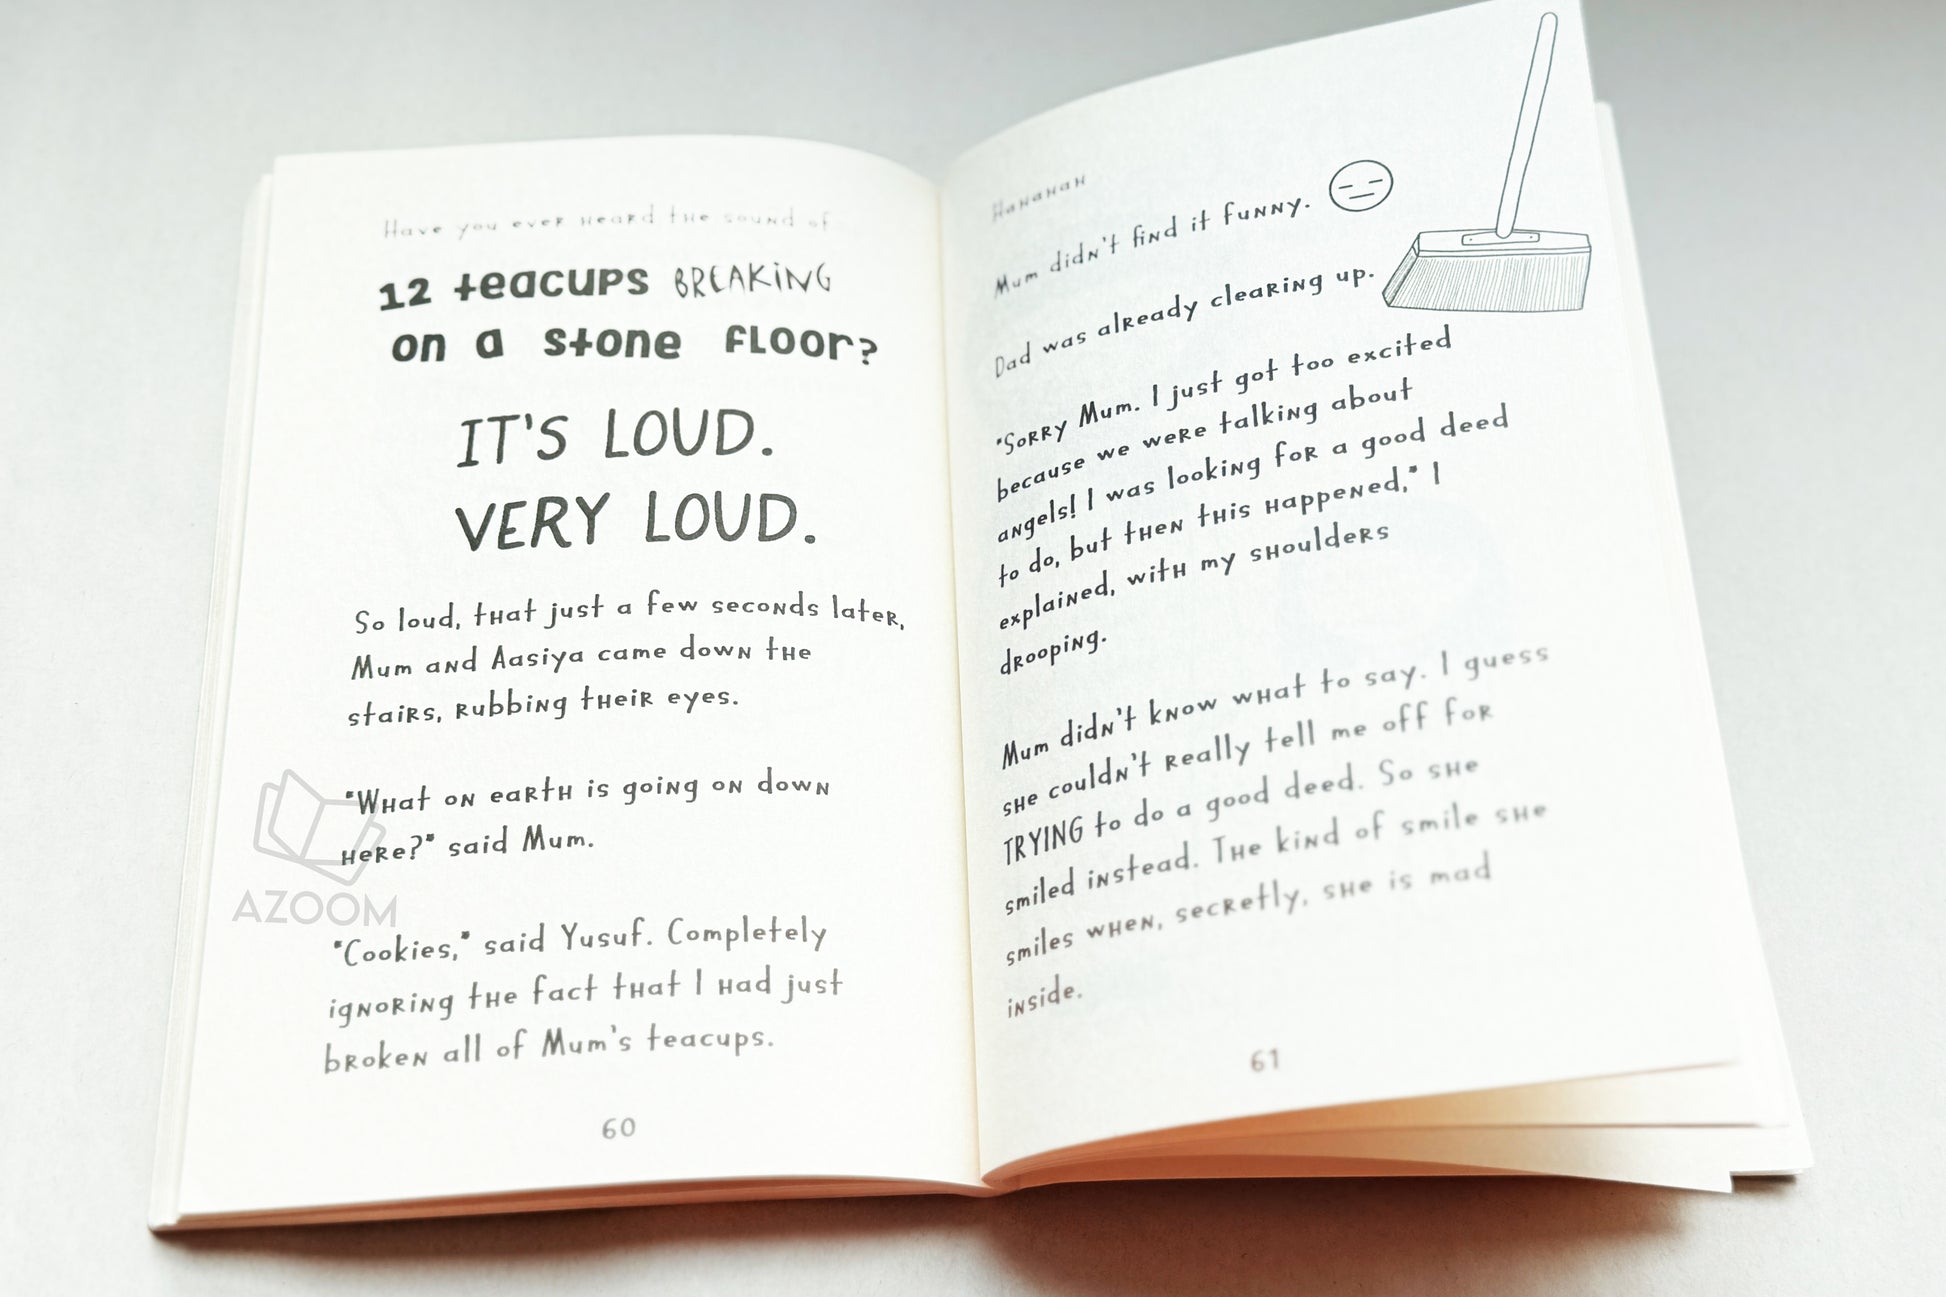 Have you ever heard the sound of
12 teacups BREAKING
on a stone floor?
IT'S LOUD.
VERY LOUD.
So loud, that just a few seconds later,
Mum and Aasiya came down the
stairs, rubbing their eyes.
"What on earth is going on down
here?" said Mum.
"Cookies," said Yusuf. Completely
ignoring the fact that I had just
broken all of Mum's teacups.
60
AZOOM
Hahahah
Mum didn't find it funny.
Dad was already clearing up.
"Sorry Mum. I just got too excited
because we were talking about
angels! I was looking for a good deed
to do, but then this happened," I
explained, with my shoulders
drooping.
Mum didn't know what to say. I guess
she couldn't really tell me off for
TRYING to do a good deed. So she
smiled instead. The kind of smile she
smiles when, secretly, she is mad
inside.
61